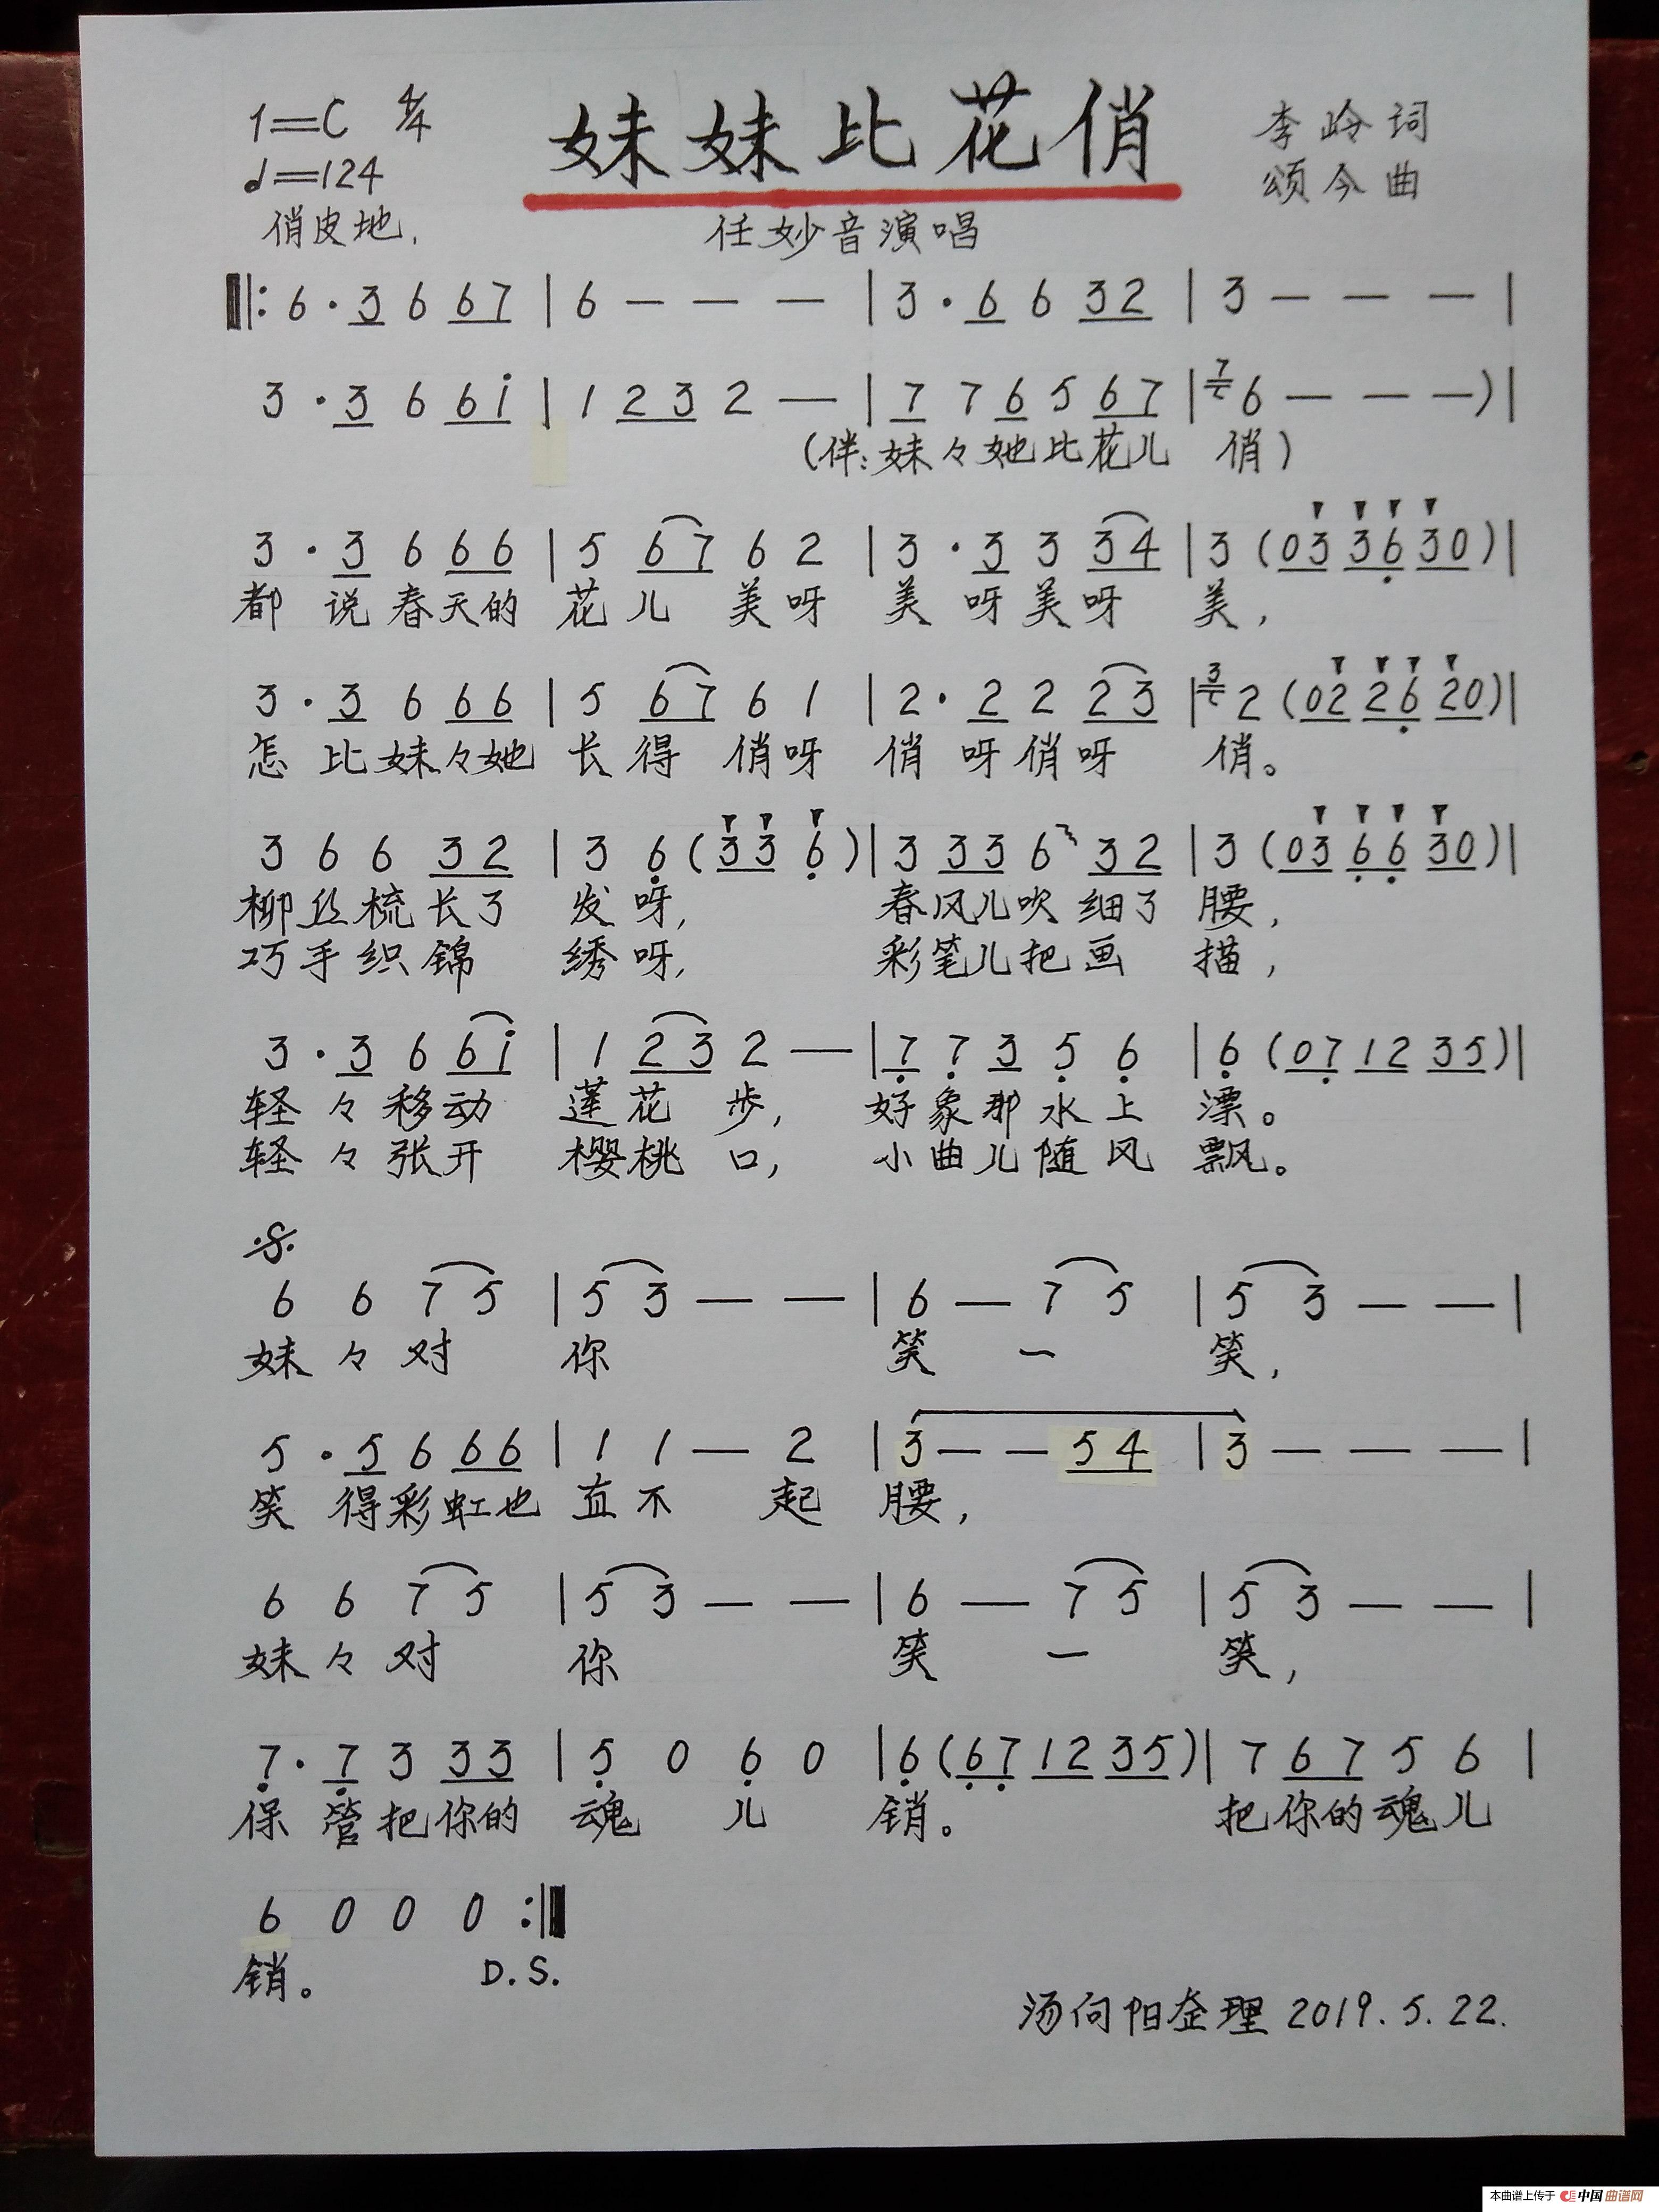 1=C 4/4 妹妹比花俏 李岭词
♩=124 颂今曲
俏皮地, 任妙音演唱
‖: 6 · 3 6 6 7 | 6 — — — | 3 · 6 6 3 2 | 3 — — — |
3 · 3 6 6 i | 1 2 3 2 — | 7 7 6 5 6 7 | 7 6 — — — ) |
(伴:妹々她比花儿 俏)
3 · 3 6 6 6 | 5 6 7 6 2 | 3 · 3 3 3 4 | 3 ( 0 3 3 6 3 0 ) |
都 说 春天的 花 儿 美呀 美 呀美呀 美,
3 · 3 6 6 6 | 5 6 7 6 1 | 2 · 2 2 2 3 | 3 2 ( 0 2 2 6 2 0 ) |
怎 比妹々她 长 得 俏呀 俏 呀俏呀 俏。
3 6 6 3 2 | 3 6 ( 3 3 6 ) | 3 3 3 6 3 2 | 3 ( 0 3 6 6 3 0 ) |
柳丝梳长了 发 呀, 春风儿吹 细了 腰,
巧手织锦 绣呀, 彩笔儿把画 描,
3 · 3 6 6 i | 1 2 3 2 — | 7 7 3 5 6 | 6 ( 0 7 1 2 3 5 ) |
轻々移动 莲花 步, 好象那水上 漂。
轻々张开 樱桃 口, 小曲儿随风 飘。
𝄋
6 6 7 5 | 5 3 — — | 6 — 7 5 | 5 3 — — |
妹々对 你 笑 一 笑,
5 · 5 6 6 6 | 1 1 — 2 | 3 — — 5 4 | 3 — — — |
笑 得彩虹也 直不 起 腰,
6 6 7 5 | 5 3 — — | 6 — 7 5 | 5 3 — — |
妹々对 你 笑 一 笑,
7 · 7 3 3 3 | 5 0 6 0 | 6 ( 6 7 1 2 3 5 ) | 7 6 7 5 6 |
保 管把你的 魂 儿 销。 把你的魂儿
6 0 0 0 :‖
销。 D.S.
汤向阳整理 2019.5.22.
本曲谱上传于 中国曲谱网